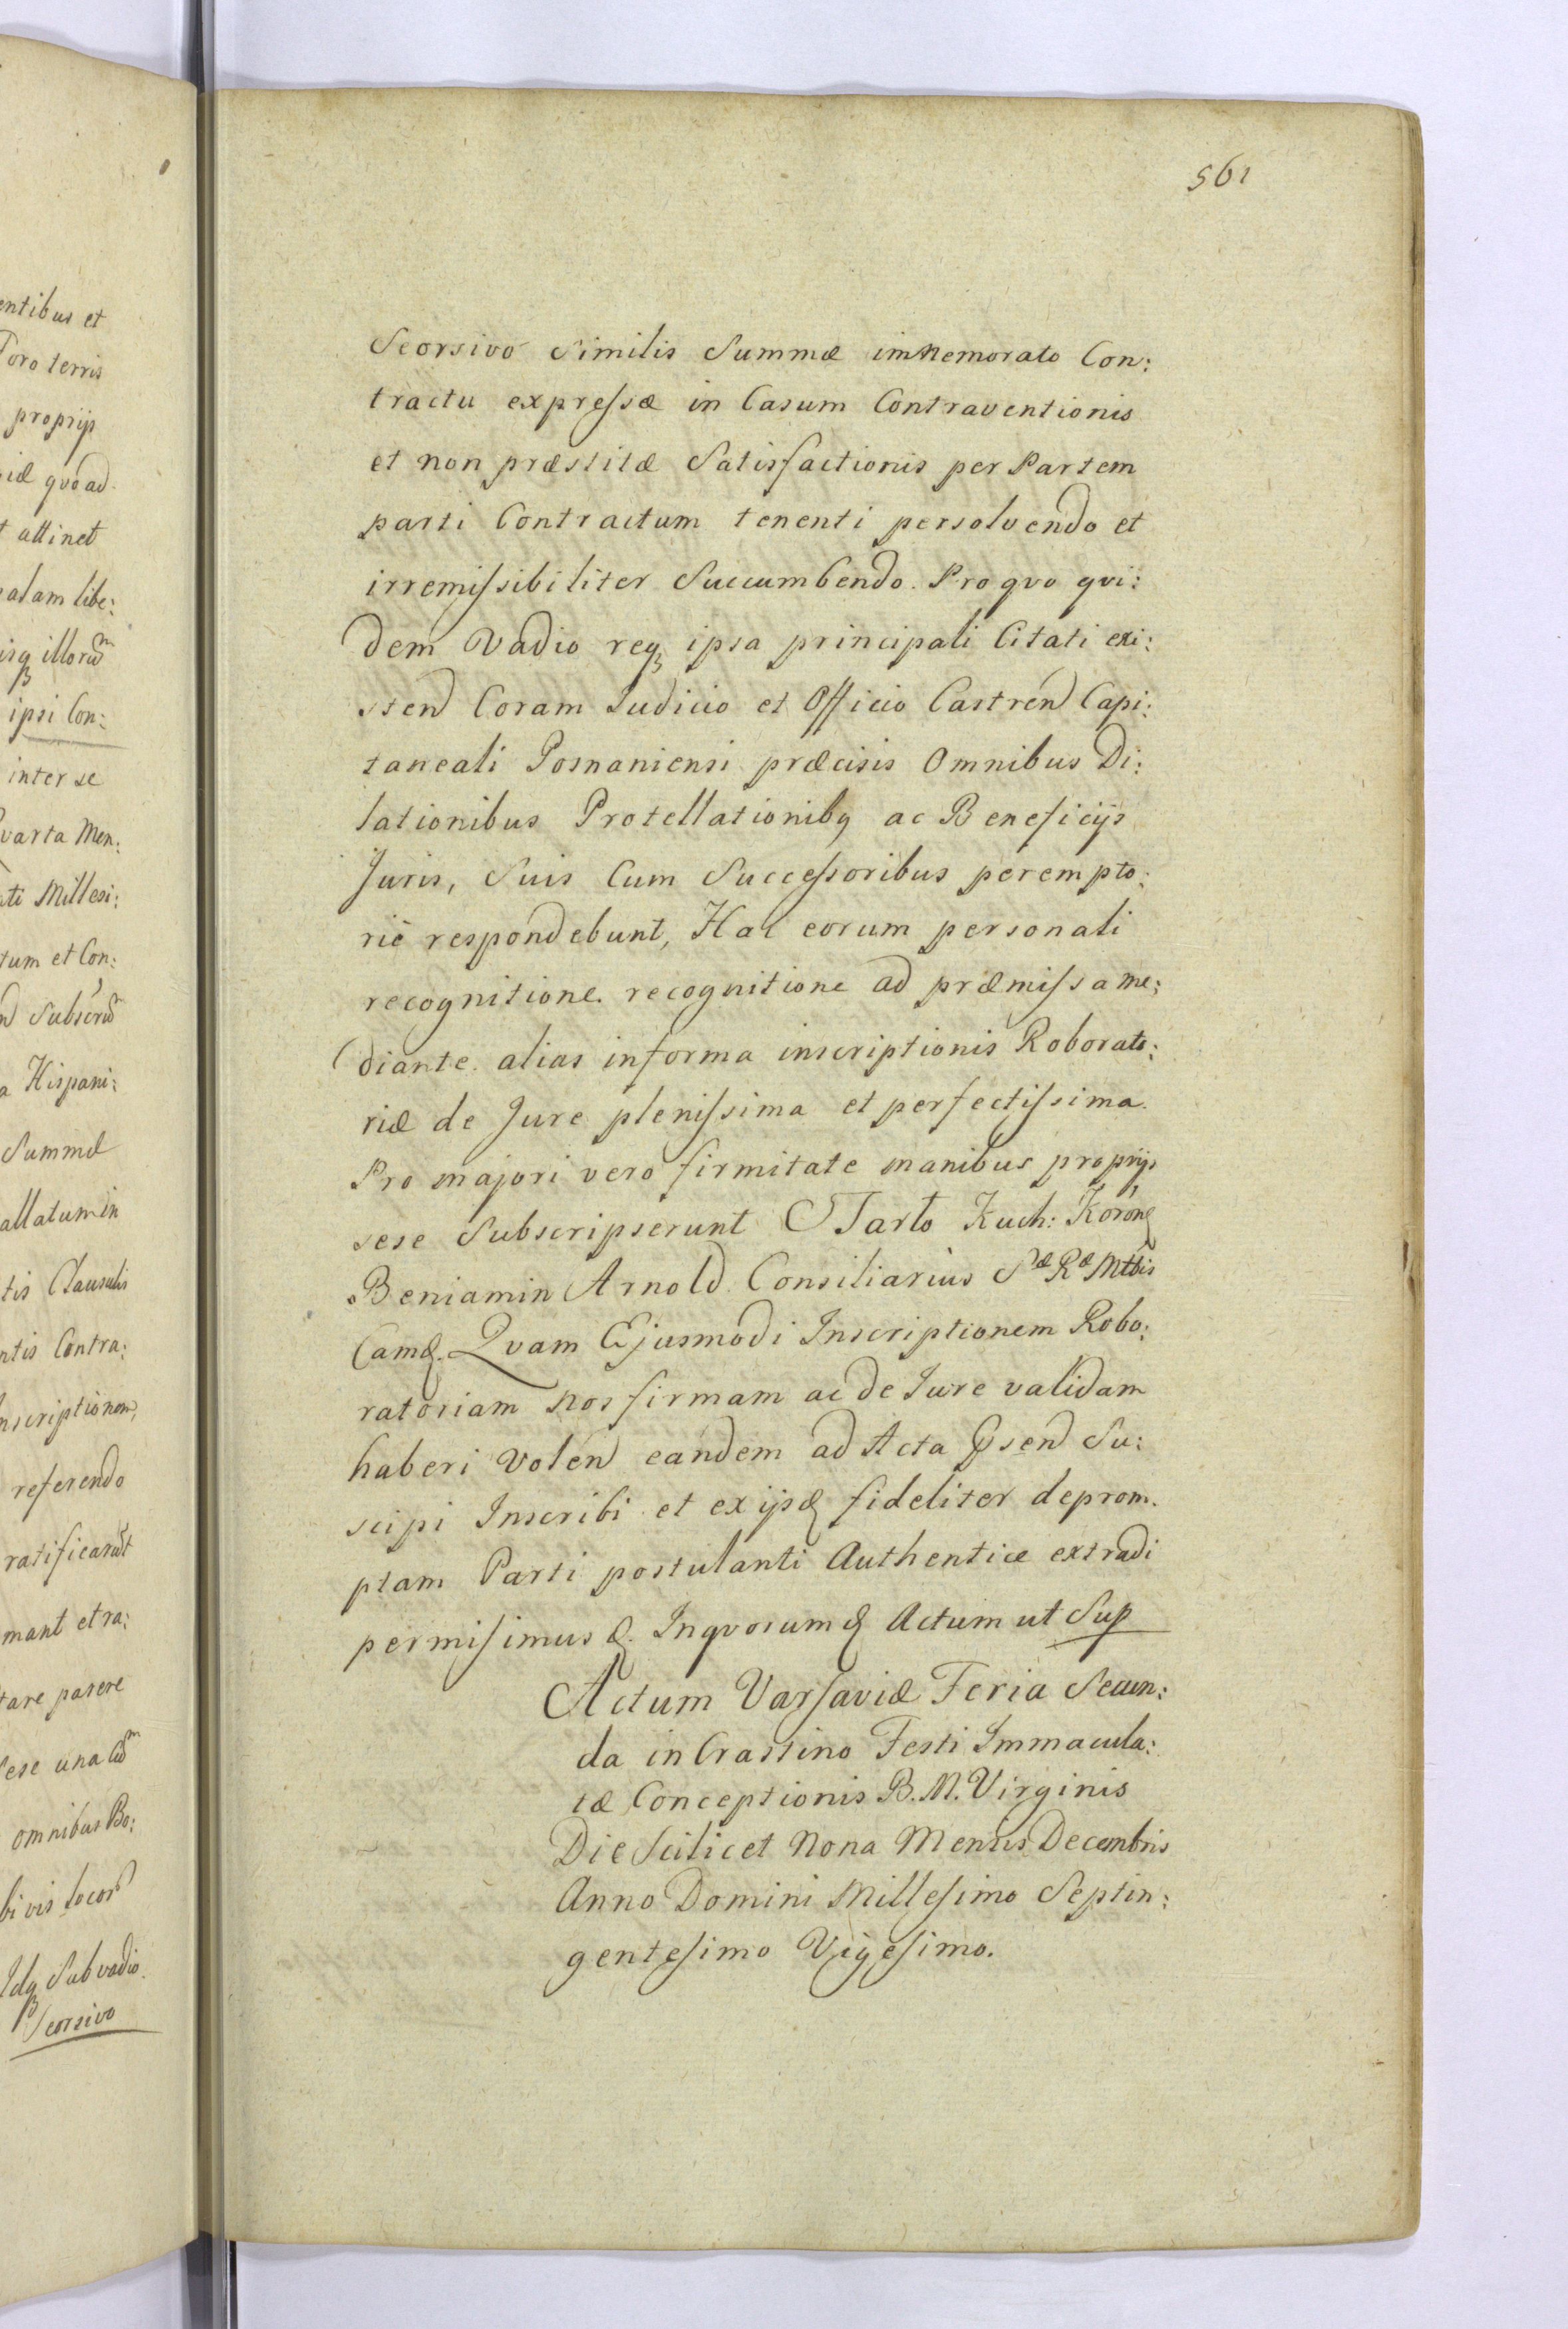 entibus et
Toro terris
proprijs
iæ quoad
t attinet
alam libe:
isq illorum
ipsi Con:
inter se
Quarta Men:
ati Millesi:
tum et Con:
a Hispani:
Summæ
allatum in
tis Clausulis
ntis Contra:
nscriptionem,
referendo
ratificarut
mant et ra:
tare parere
sese una cum
omnibus Bo:
bi vis locor
Idq Sub vadio
Seorsivo
561
Seorsivo Similis Summæ immemorato Con:
tractu expressæ in Casum Contraventionis
et non præstitæ Satisfactionis per Partem
parti Contractum tenenti persolvendo et
irremissibiliter Succumbendo. Pro qvo qvi:
dem Vadio req ipsa principali Citati exi:
sten Coram Judicio et Officio Castren Capi:
taneali Posnaniensi præcisis Omnibus Di:
lationibus Protellationibq ac Beneficijs
Juris, Suis Cum Successoribus perempto:
riè respondebunt, Hac eorum personali
recognitione. recognitione ad præmissa me:
diante. alias informa inscriptionis Roborato:
riæ de Jure plenissima et perfectissima.
Pro majori vero firmitate manibus proprijs
sese Subscripserunt JTarło Kuch: Koronę
Beniamin Arnold Consiliarius Sæ Ræ Mttis
Camę. Qvam Ejusmodi Inscriptionem Robo:
ratoriam nos firmam ac de Jure validam
haberi Volen eandem ad Acta Psen Su:
scipi Inscribi et ex ijsę fideliter deprom.
ptam Parti postulanti Authentice extradi
permisimus ę. Inqvorumę Actum ut Sup
Actum Varsaviæ Feria Secun:
da in Crastino Festi Immacula:
tæ Conceptionis B. M. Virginis
Die Scilicet Nona Mensis Decembris
Anno Domini Millesimo Septin:
gentesimo Vigesimo.